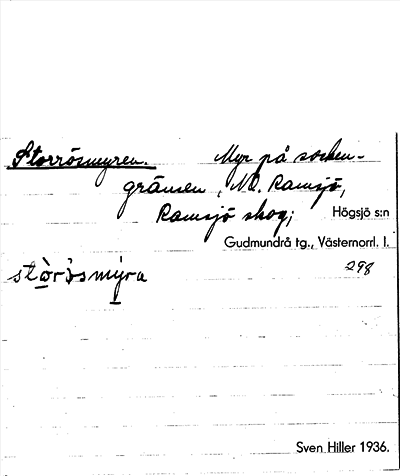 Storrösmyren. Myr på socken-
gränsen, NO. Ramsjö,
Ramsjö skog; Högsjö s:n
Gudmundrå tg., Västernorrl. l.
298
Sven Hiller 1936.